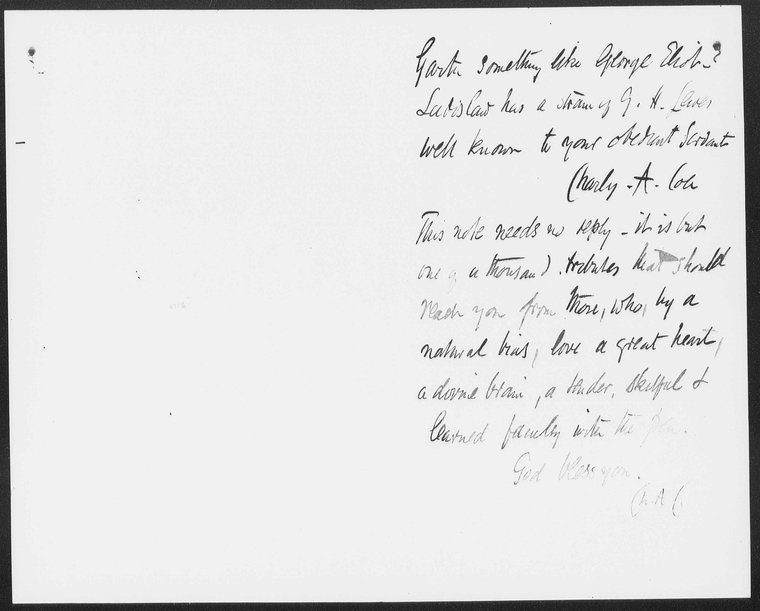 Garth something like George Eliot -?
Ladislaw has a strain of G. H. Lewes
well known to your obedient Servant
Charly - A - Cole
This note needs no reply - it is but
one of a thousand tributes that should
reach you from those, who, by a
natural bias, love a great heart,
a divine brain, a tender, skilful &
learned faculty with the pen.
God bless you.